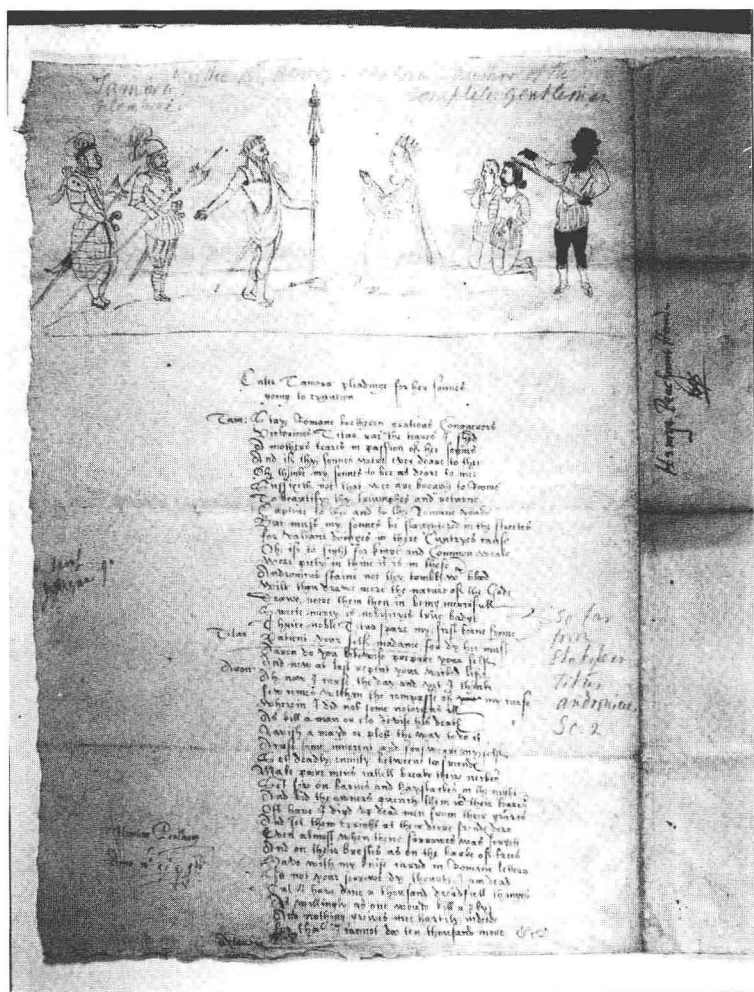 Henrye Peachams Hande
1595
complete gentleman
Enter Tamora pleadinge for her sonnes
going to execution
Tam: Stay Romane bretheren gratious Conquerors
Victorious Titus rue the teares I shed
A mothers teares in passion of her sonnes
And if thy sonnes were ever deare to thee
Oh thinke my sonnes to bee as deare to mee
Suffizeth not that wee are brought to Roome
To beautify thy triumphes and returne
Captive to thee and to thy Romane yoake
But must my sonnes be slaughtered in the streetes
for valiant doinges in there Cuntryes cause
Oh if to fight for kinge and Common weale
Were piety in thine it is in these
Andronicus staine not thy tombe wth blood
Wilt thou drawe neere the nature of the Godes
Drawe neere them then in being mercifull
Sweete mercy is nobilityes true badge
Thrice noble Titus spare my first borne sonne
Titus: Patient your self madame for dy hee must
Aaron do you likewise prepare your self
And now at last repent your wicked life
Aron: Ah now I curse the day and yet I thinke
few comes within the compasse of my curse
Wherein I did not some notorious ill
As kill a man or els devise his death
Ravish a mayd or plott the way to do it
Acuse some innocent and forsweare myself
Set deadly enmity betweene too freendes
Make poore mens cattell breake theire neckes
Set fire on barnes and haystackes in the night
And bid the owners quench them wth their teares
Oft have I digd up dead men from their graves
And set them upright at their deere frendes dore
Even almost when theire sorrowes was forgott
And on their brestes as on the barke of trees
Have with my knife carvd in Romane letters
Lett not your sorrowe dy though I am dead
Tut I have done a thousand dreadfull thinges
As willingly as one would kill a fly
And nothing greives mee hartily indeede
for that I cannot doo ten thousand more &c
Alarbus
So far
from
Shakspear
Titus
Andronicus
Sc. 2
Henricus Peacham